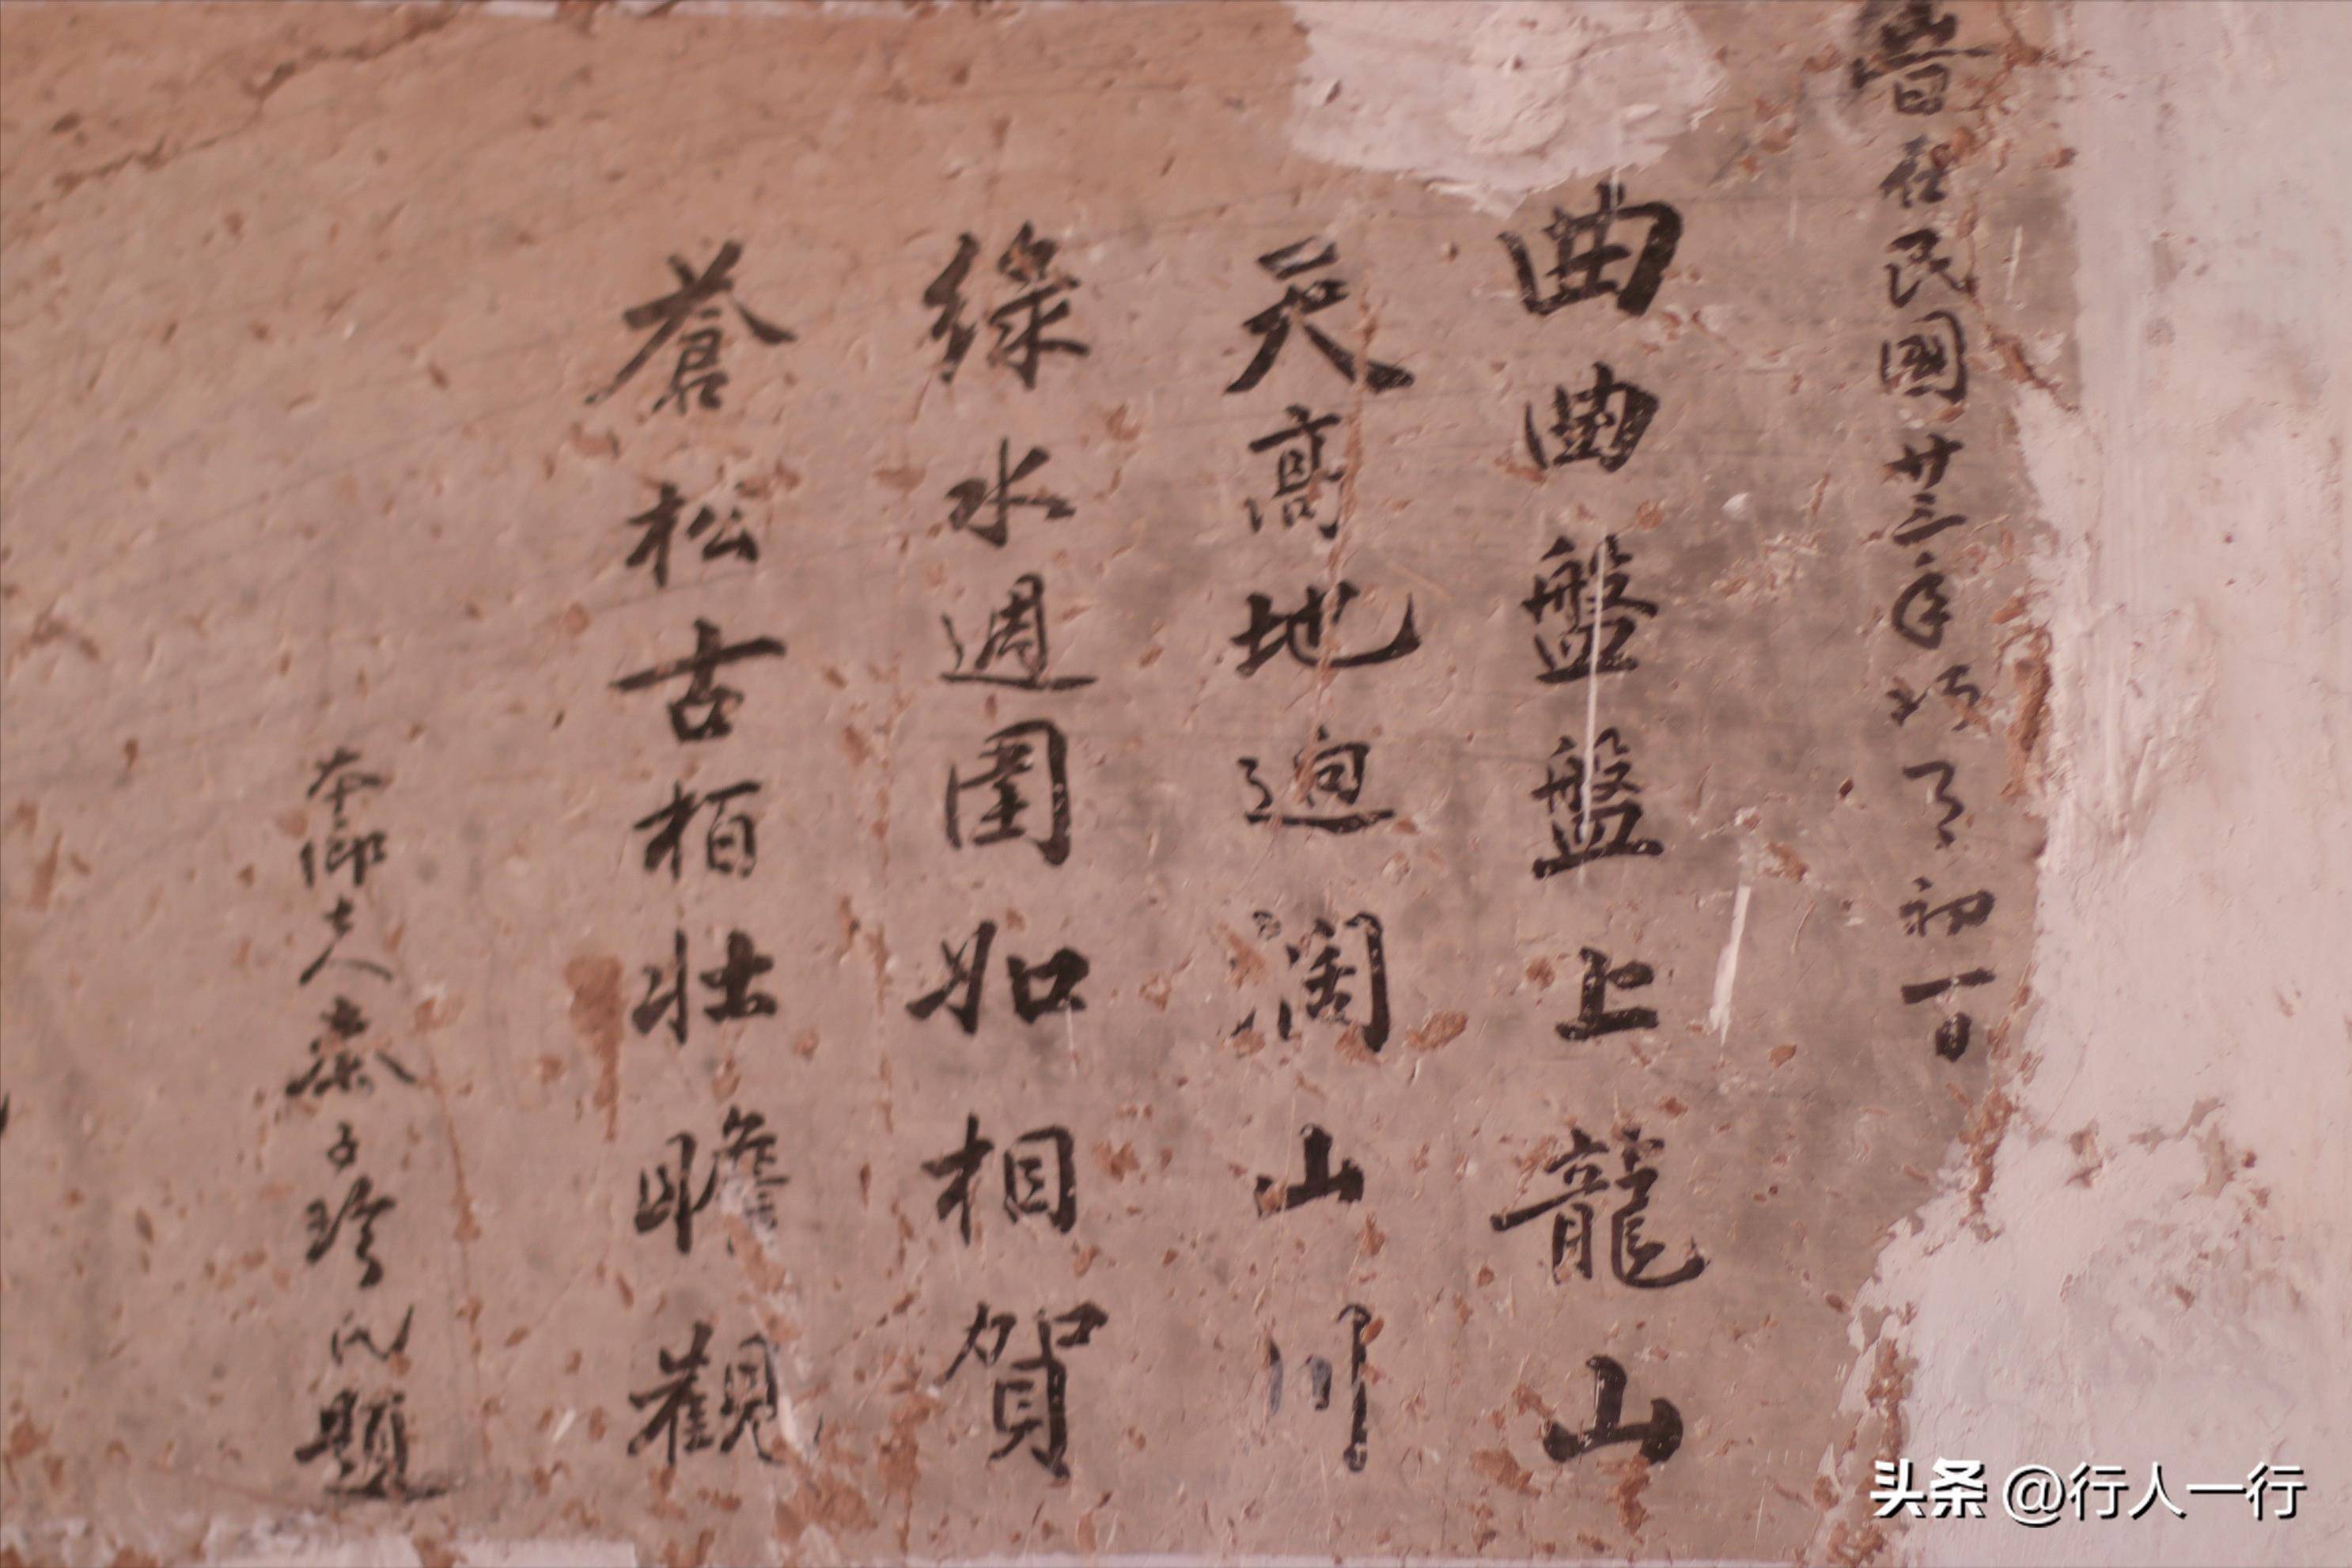 旹在民國廿三年 初一日
曲曲盤盤上龍山
天高地迥濶山川
綠水週圍如相賀
蒼松古栢壯瞻觀
本鄉士人秦子珍氏題
头条 @行人一行